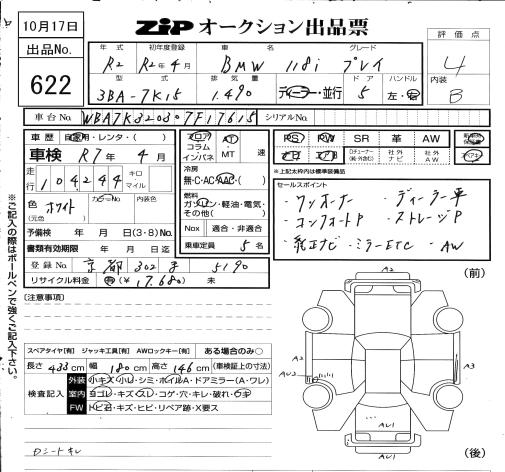 10月17日
ZiP オークション出品票
評価点
4
内装
B
出品No.
622
年式 初年度登録 車名 グレード
R2 R2年4月 BMW 118i プレイ
型式 排気量 ドア ハンドル
3BA-7K15 1.490 ディーラー・並行 5 左・右
車台No. WBA7K320807F17615 シリアルNo.
車歴 自家用・レンタ・( )
車検 R7年4月
走行 104244 キロ マイル
色 ホワイト カラーNo.
(元色)
予備検 年 月 日(3・8)No.
書類有効期限 年 月 日迄
登録No. 京都 302 す 5190
リサイクル料金 有(¥17,680) 未
フロア コラム インパネ
AT・MT 速
冷房
無・C・AC・AAC・( )
燃料
ガソリン・軽油・電気・
その他( )
Nox 適合・非適合
乗車定員 5名
PS PW SR 革 AW
社外ナビ 社外AV
*上記太枠内は標準装備品
セールスポイント
・ワンオーナー ・ディーラー車
・コンフォートP ・ストレージP
・純正ナビ ・ミラーETC ・AW
※ご記入の際はボールペンで強くご記入下さい。
[注意事項]
スペアタイヤ[有] ジャッキ工具[有] AWロックキー[有] ある場合のみ○
長さ 433cm 幅 180cm 高さ 146cm (車検証上の寸法)
検査記入
外装 小キズ・小凹・シミ・ホイルA・ドアミラー(A・ワレ)
室内 ヨゴレ・キズ・スレ・コゲ・穴・キレ・破れ・ウキ
FW トビ石・キズ・ヒビ・リペア跡・X要ス
Dシートキレ
(前)
A2
A2
AU2
A3
AU1
AU1
(後)